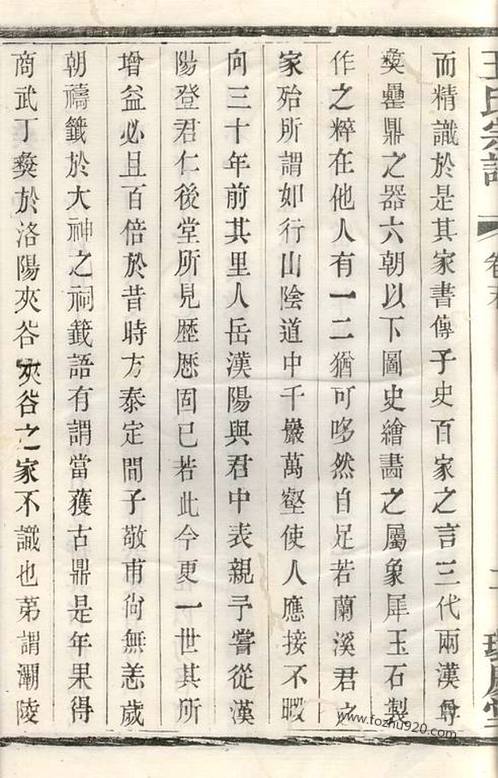 而精識於是其家書傳子史百家之言三代兩漢尊
彝罍鼎之器六朝以下圖史繪畵之屬象犀玉石製
作之粹在他人有一二猶可哆然自足若蘭溪君之
家殆所謂如行山陰道中千巖萬壑使人應接不暇
向三十年前其里人岳漢陽與君中表親予嘗從漢
陽登君仁後堂所見歷歷固已若此今更一世其所
增益必且百倍於昔時方泰定間子敬甫尙無恙歲
朝禱籤於大神之祠籤語有謂當獲古鼎是年果得
商武丁彝於洛陽夾谷夾谷之家不識也第謂灞陵
www.fozhu920.com